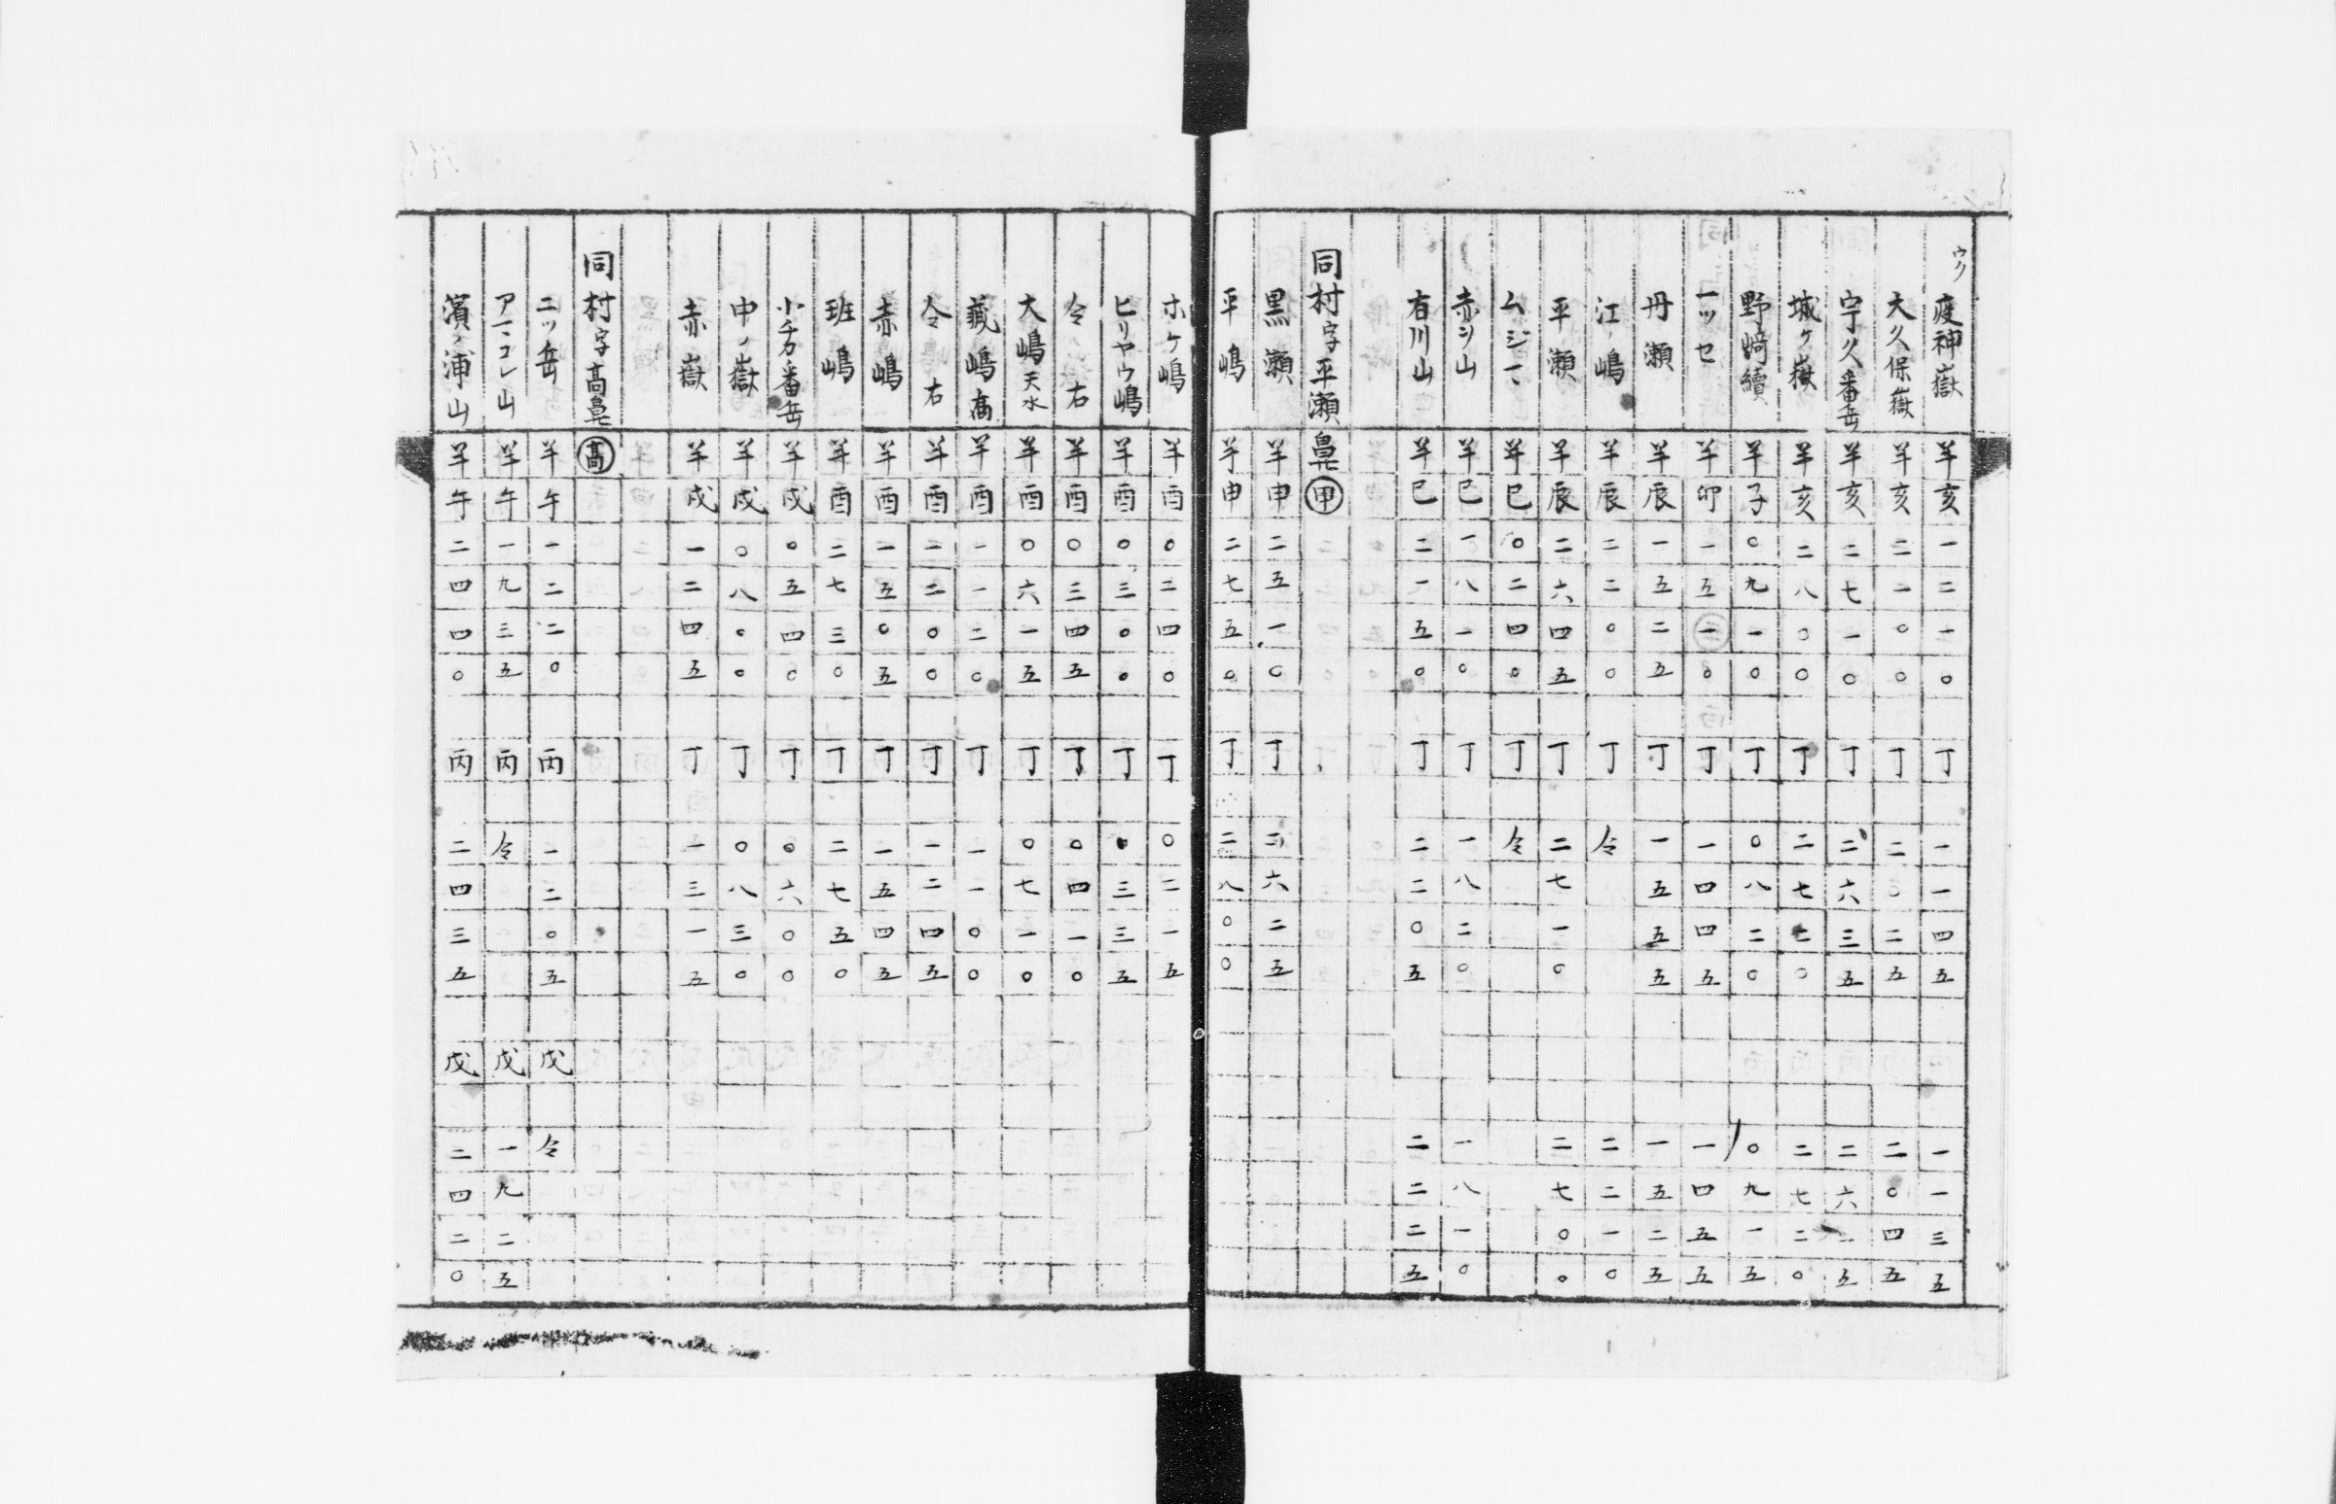 ウク 疫神嶽 羊亥 一二一〇 丁 一一四五 一一三五
大久保嶽 羊亥 二一〇〇 丁 二〇二五 二〇四五
宇久番岳 羊亥 二七一〇 丁 二六三五
城ヶ嶽 羊亥 二八〇〇 丁 二七七〇 二七二〇
野﨑續 羊子 〇九一〇 丁 〇八二〇 〇九一五
一ッセ 羊卯 一五 〇 丁 一四四五 一四五五
丹瀬 羊辰 一五二五 丁 一五五五 一五二五
江ノ嶋 羊辰 二二〇〇 丁 令 二二一〇
平瀬 羊辰 二六四五 丁 二七一〇 二七〇〇
羊巳 〇二四〇 丁 令
赤シ山 羊巳 一八一〇 丁 一八二〇 一八一〇
右川山 羊巳 二一五〇 丁 二二〇五 二二二五
同村字平瀬鼻 甲
黒瀬 羊申 二五一〇 丁 二六二五
平嶋 羊申 二七五〇 丁 二八〇〇
ホケ嶋 羊酉 〇二四〇 丁 〇二一五
ヒリヤウ嶋 羊酉 〇三〇〇 丁 〇三三五
令 右 羊酉 〇三四五 丁 〇四一〇
大嶋 天水 羊酉 〇六一五 丁 〇七一〇
藏嶋高 羊酉 一一二〇 丁 一一〇〇
令 右 羊酉 一二〇〇 丁 一二四五
赤嶋 羊酉 一五〇五 丁 一五四五
班嶋 羊酉 二七三〇 丁 二七五〇
小チカ番岳 羊戌 〇五四〇 丁 〇六〇〇
中ノ嶽 羊戌 〇八〇〇 丁 〇八三〇
赤嶽 羊戌 一二四五 丁 一三一五
同村字高鼻 高
二ッ岳 羊午 一二二〇 丙 一二〇五 戊 令
羊午 一九三五 丙 令 戊 一九二五
濱ノ浦山 羊午 二四四〇 丙 二四三五 戊 二四二〇